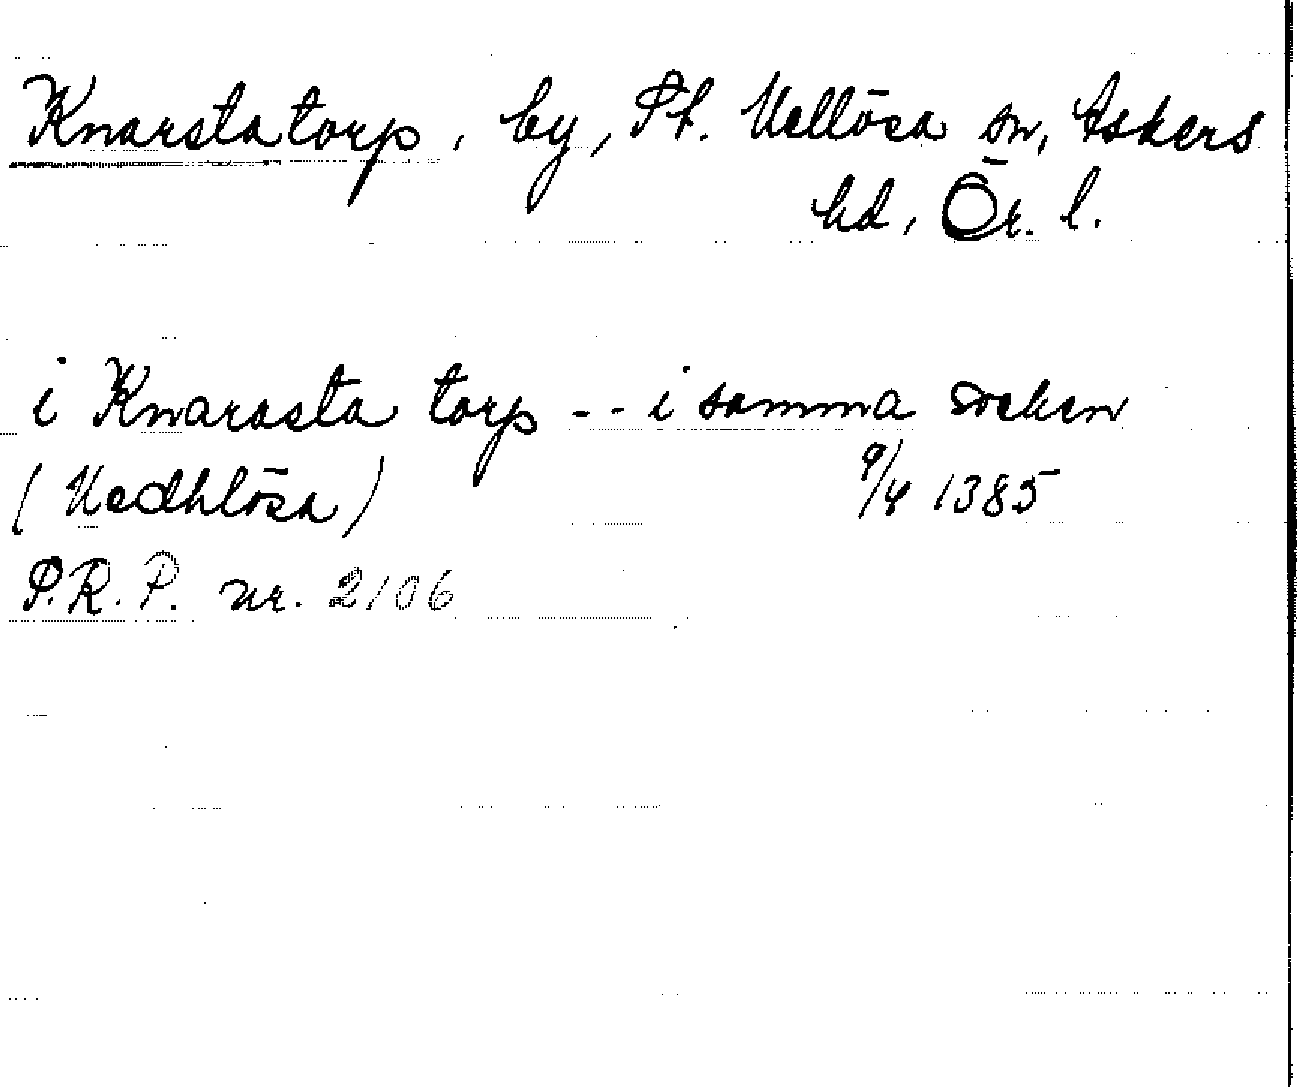 Knarstatorp, by, St. Mellösa sn, Askers
hd, Ör. l.
i Knarasta torp -- i samma soeken
(Medhlösa) 9/4 1385
P.R.P. nr. 2106